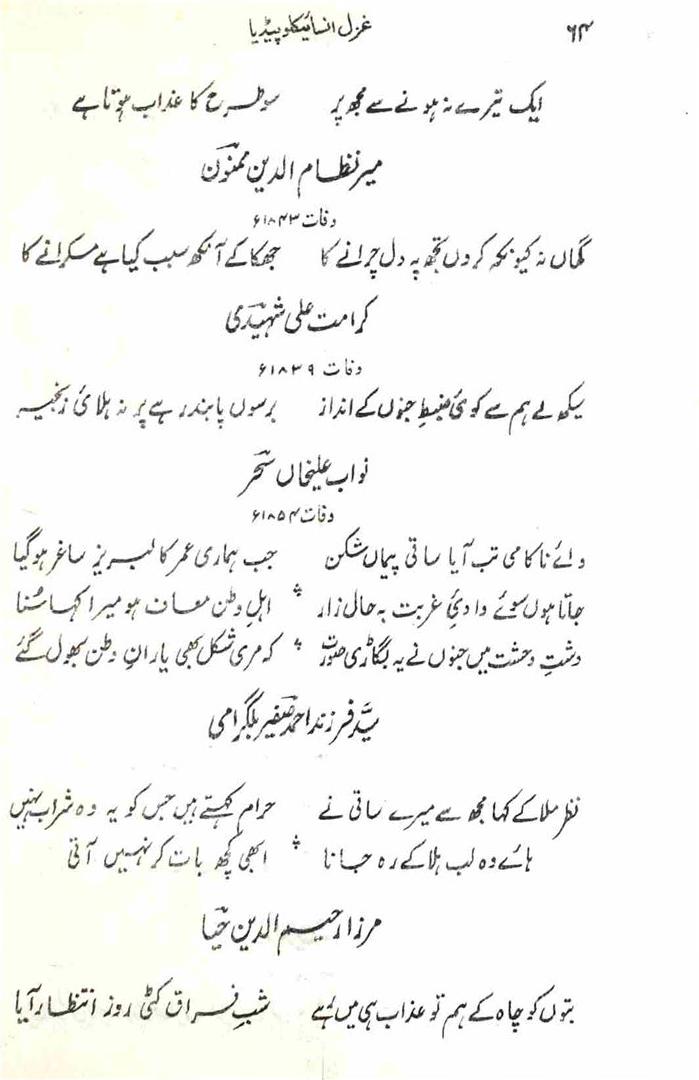 ۶۴ غزل انسائیکلوپیڈیا
ایک تیرے نہ ہونے سے مجھ پر سو طرح کا عذاب ہوتا ہے
میر نظام الدین ممنون
وفات ۱۸۴۳ء
گماں نہ کیونکہ کروں تجھ پہ دل چرانے کا جھکا کے آنکھ سبب کیا ہے مسکرانے کا
کرامت علی شہیدی
وفات ۱۸۳۹ء
سیکھ لے ہم سے کوئی ضبطِ جنوں کے انداز برسوں پابند رہے پر نہ ہلائی زنجیر
نواب علیخاں سحر
وفات ۱۸۵۴ء
وائے ناکامی تب آیا ساقی پیماں شکن جب ہماری عمر کا لبریز ساغر ہو گیا
جاتا ہوں سوئے وادئ غربت بہ حالِ زار اہلِ وطن معاف ہو میرا کہا سُنا
دشتِ وحشت میں جنوں نے یہ بگاڑی صورت کہ مری شکل بھی یارانِ وطن بھول گئے
سیّد فرزند احمد صفیر بلگرامی
نظر ملا کے کہا مجھ سے میرے ساقی نے حرام کہتے ہیں جس کو یہ وہ شراب نہیں
ہائے وہ لب ہلا کے رہ جانا ابھی کچھ بات کر نہیں آتی
مرزا رحیم الدین حیا
بتوں کو چاہ کے ہم تو عذاب ہی میں رہے شبِ فراق کٹی روز انتظار آیا